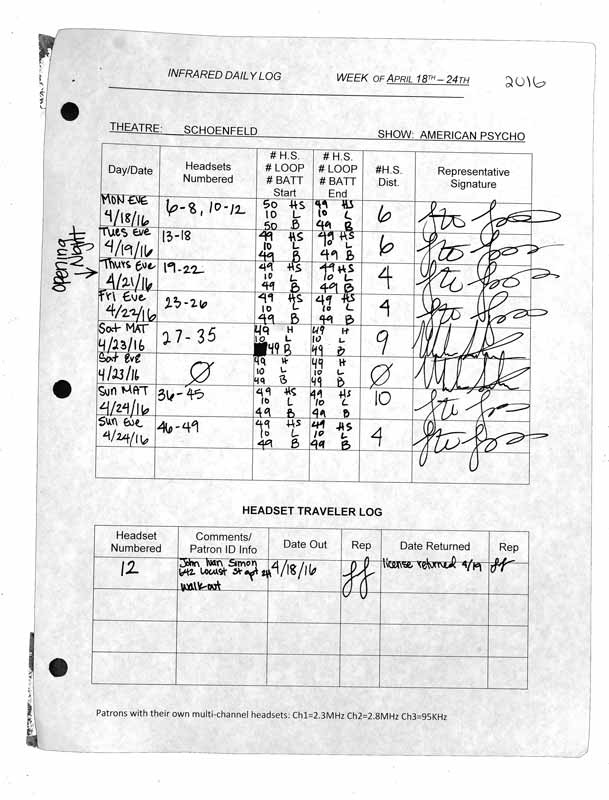 INFRARED DAILY LOG WEEK OF APRIL 18TH – 24TH 2016
THEATRE: SCHOENFELD SHOW: AMERICAN PSYCHO
Day/Date Headsets Numbered # H.S. # LOOP # BATT Start # H.S. # LOOP # BATT End #H.S. Dist. Representative Signature
MON EVE 4/18/16 6-8, 10-12 50 HS 10 L 50 B 49 HS 10 L 50 B 6
Tues Eve 4/19/16 13-18 49 HS 10 L 49 B 49 HS 10 L 49 B 6
opening Night
Thurs Eve 4/21/16 19-22 49 HS 10 L 49 B 49 HS 10 L 49 B 4
Fri Eve 4/22/16 23-26 49 HS 10 L 49 B 49 HS 10 L 49 B 4
Sat MAT 4/23/16 27-35 49 H 10 L 49 B 49 H 10 L 49 B 9
Sat Eve 4/23/16 Ø 49 H 10 L 49 B 49 H 10 L 49 B Ø
Sun MAT 4/24/16 36-45 49 HS 10 L 49 B 49 HS 10 L 49 B 10
Sun Eve 4/24/16 46-49 49 HS 10 L 49 B 49 HS 10 L 49 B 4
HEADSET TRAVELER LOG
Headset Numbered Comments/ Patron ID Info Date Out Rep Date Returned Rep
12 John Ivan Simon 642 Locust St apt 2H walk-out 4/18/16 license returned 4/19
Patrons with their own multi-channel headsets: Ch1=2.3MHz Ch2=2.8MHz Ch3=95KHz